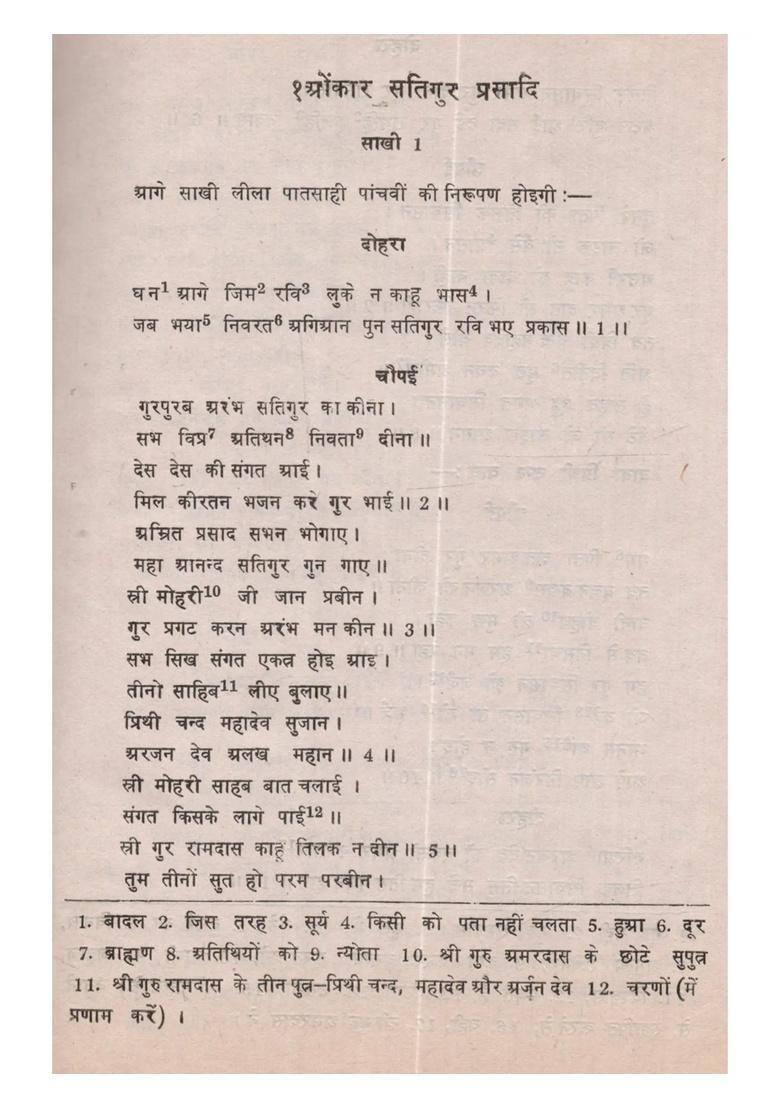 १ओंकार सतिगुर प्रसादि
साखी 1
आगे साखी लीला पातसाही पांचवीं की निरूपण होइगी :—
दोहरा
घन¹ आगे जिम² रवि³ लुके न काहू भास⁴ ।
जब भया⁵ निवरत⁶ अगिआन पुन सतिगुर रवि भए प्रकास ॥ 1 ॥
चौपई
गुरपुरब अरंभ सतिगुर का कीना ।
सभ विप्र⁷ अतिथन⁸ निवता⁹ दीना ॥
देस देस की संगत आई ।
मिल कीरतन भजन करे गुर भाई ॥ 2 ॥
अम्रित प्रसाद सभन भोगाए ।
महा आनन्द सतिगुर गुन गाए ॥
स्री मोहरी¹⁰ जी जान प्रबीन ।
गुर प्रगट करन अरंभ मन कीन ॥ 3 ॥
सभ सिख संगत एकत्र होइ आइ ।
तीनो साहिब¹¹ लीए बुलाए ॥
प्रिथी चन्द महादेव सुजान ।
अरजन देव अलख महान ॥ 4 ॥
स्री मोहरी साहब बात चलाई ।
संगत किसके लागे पाई¹² ॥
स्री गुर रामदास काहूं तिलक न दीन ॥ 5 ॥
तुम तीनों सुत हो परम परबीन ।
1. बादल 2. जिस तरह 3. सूर्य 4. किसी को पता नहीं चलता 5. हुआ 6. दूर
7. ब्राह्मण 8. अतिथियों को 9. न्योता 10. श्री गुरु अमरदास के छोटे सुपुत्र
11. श्री गुरु रामदास के तीन पुत्र–प्रिथी चन्द, महादेव और अर्जुन देव 12. चरणों (में
प्रणाम करें) ।